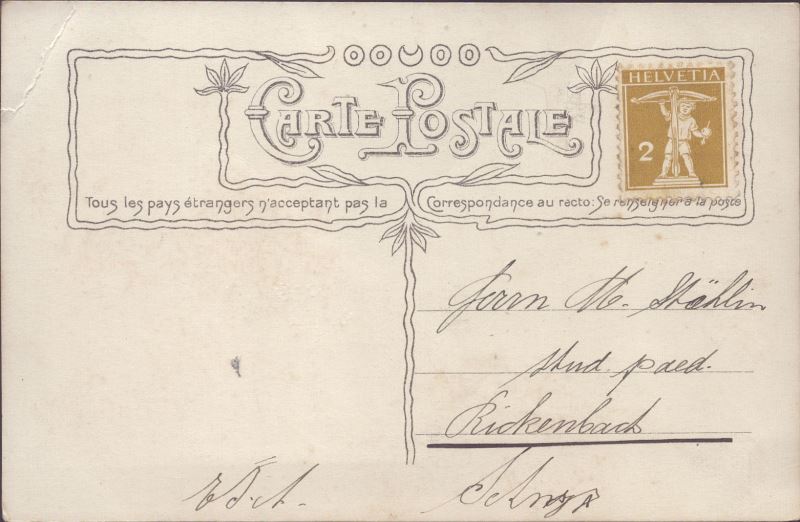 CARTE POSTALE
HELVETIA
2
Tous les pays étrangers n'acceptant pas la Correspondance au recto: Se renseigner à la poste
Herrn M. Stählin
stud. paed.
Rickenbach
Schwyz